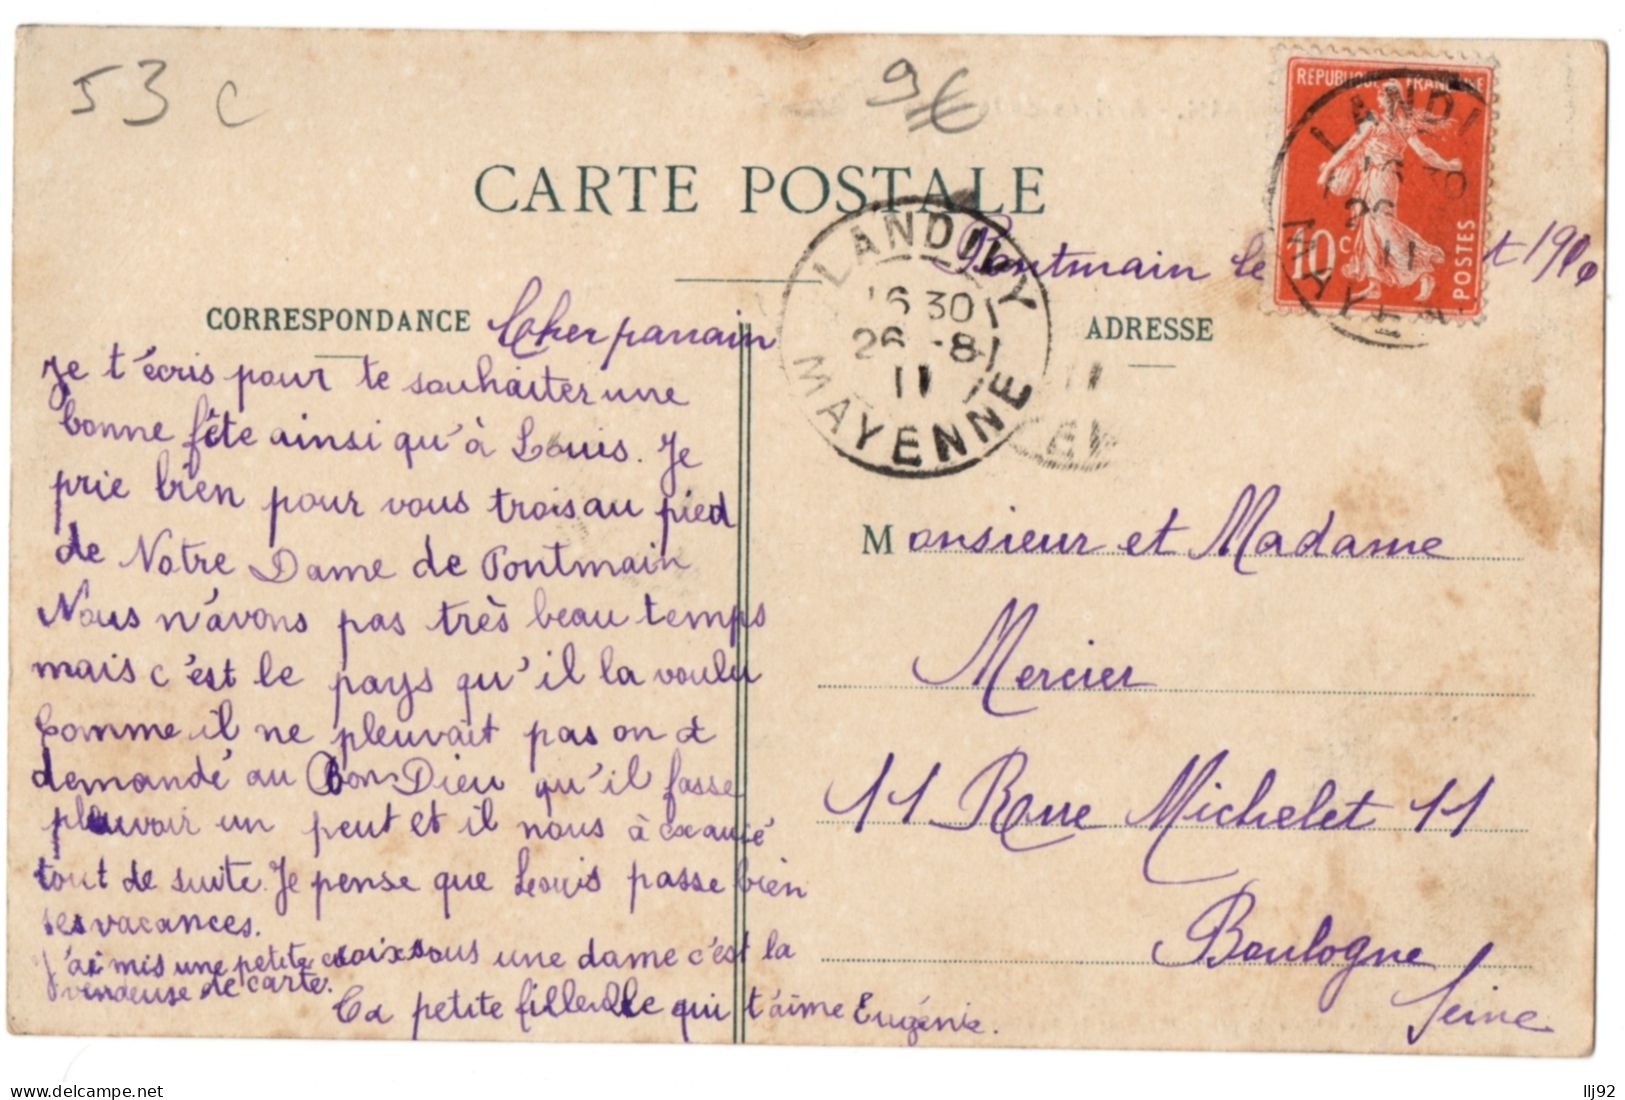 53 c
9€
CARTE POSTALE
REPUBLIQUE FRANCAISE
10c
POSTES
LANDIVY
16 30
26 -8
11
MAYENNE
LANDI
26
11
MAYEN
Pontmain le t 1910
CORRESPONDANCE
ADRESSE
Cher parrain
Je t'écris pour te souhaiter une
bonne fête ainsi qu'à Louis. Je
prie bien pour vous trois au pied
de Notre Dame de Pontmain
Nous n'avons pas très beau temps
mais c'est le pays qu'il la voulu
Comme il ne pleuvait pas on a
demandé au Bon Dieu qu'il fasse
pleuvoir un peut et il nous à exaucé
tout de suite. Je pense que Louis passe bien
ses vacances.
J'ai mis une petite croix sous une dame c'est la
vendeuse de carte.
Ta petite filleulle qui t'aime Eugénie.
Monsieur et Madame
Mercier
11 Rue Michelet 11
Boulogne
Seine
llj92